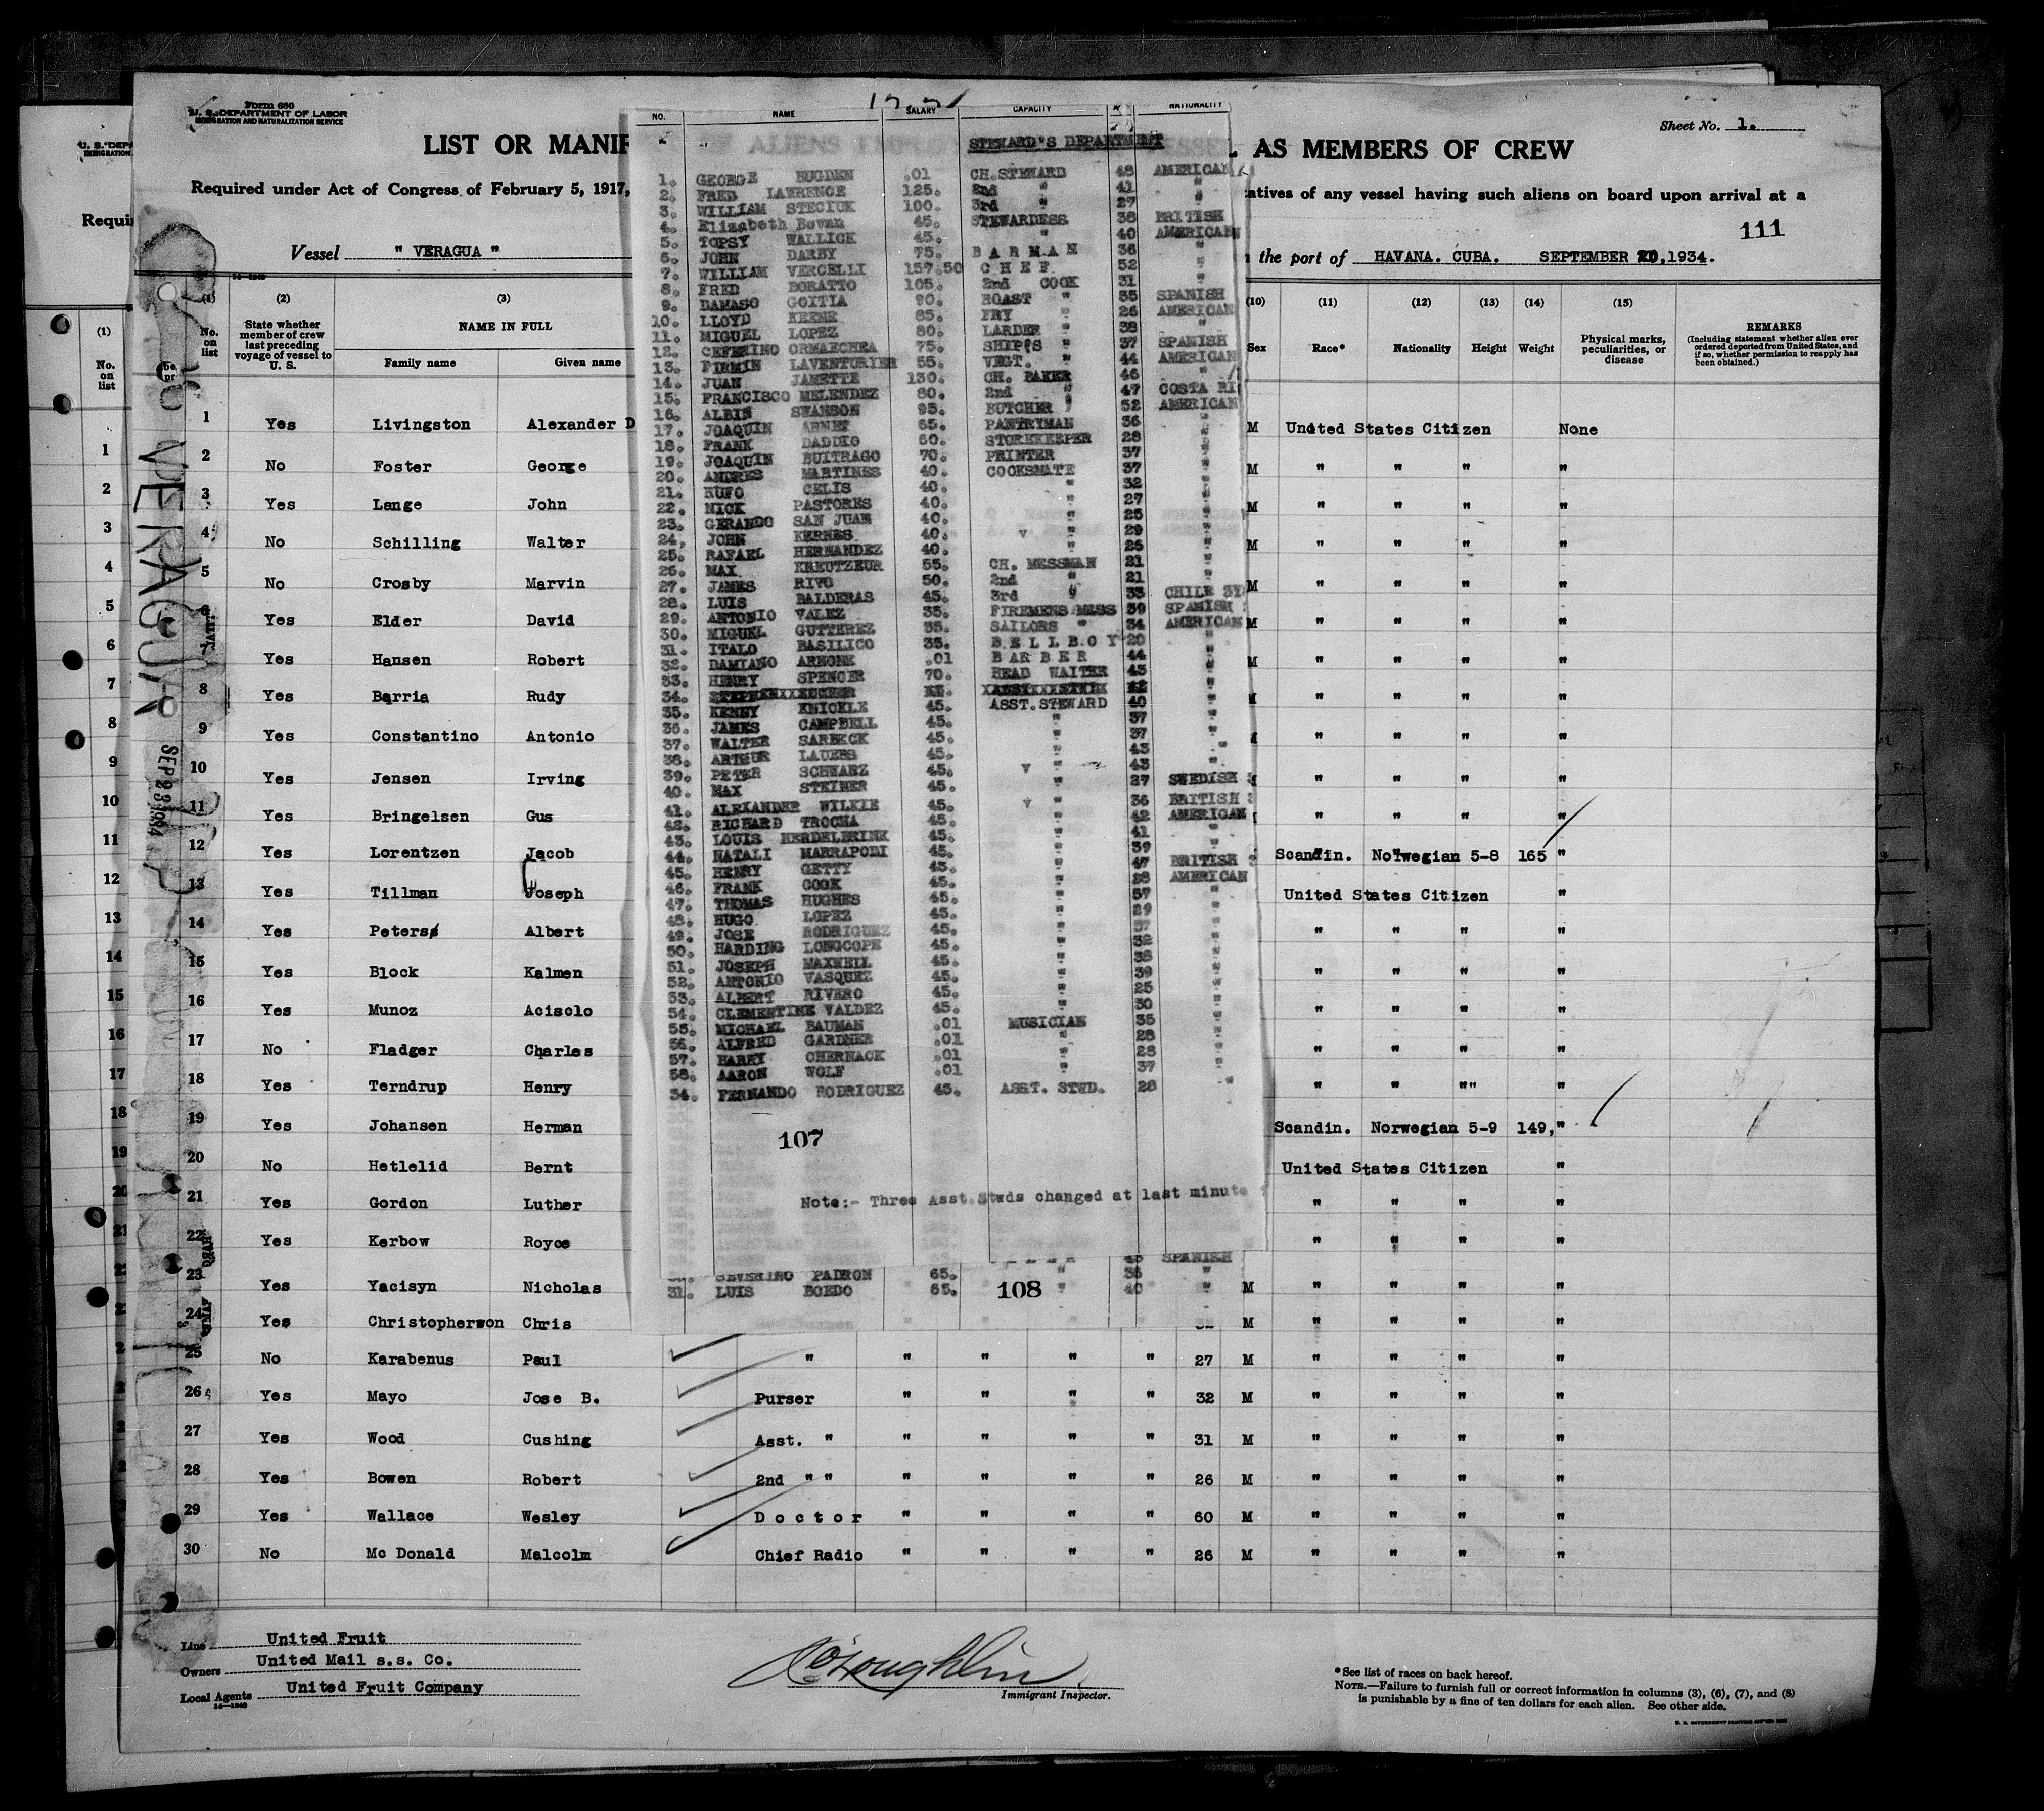 Form 680
U. S. DEPARTMENT OF LABOR
IMMIGRATION AND NATURALIZATION SERVICE
Sheet No. 1.
LIST OR MANIF
ALIENS EMPLO
ESSEL
AS MEMBERS OF CREW
Required under Act of Congress of February 5, 1917,
atives of any vessel having such aliens on board upon arrival at a
111
Vessel " VERAGUA "
the port of HAVANA. CUBA. SEPTEMBER 20, 1934.
U. S. DEPA
IMMIGRATION
Requir
VERAGUA
SEP 23 1934
(1) (2) (3) (10) (11) (12) (13) (14) (15)
No. on list
State whether member of crew last preceding voyage of vessel to U. S.
NAME IN FULL
Family name Given name
Sex Race* Nationality Height Weight
Physical marks, peculiarities, or disease
REMARKS
(Including statement whether alien ever ordered deported from United States, and if so, whether permission to reapply has been obtained.)
1 Yes Livingston Alexander D M United States Citizen None
2 No Foster George M " " " "
3 Yes Lange John M " " " "
4 No Schilling Walter M " " " "
5 No Crosby Marvin M " " " "
6 Yes Elder David M " " " "
7 Yes Hansen Robert M " " " "
8 Yes Barria Rudy " " " "
9 Yes Constantino Antonio " " " "
10 Yes Jensen Irving " " " "
11 Yes Bringelsen Gus " " " "
12 Yes Lorentzen Jacob Scandin. Norwegian 5-8 165 "
13 Yes Tillman Joseph United States Citizen "
14 Yes Peters Albert " " " "
15 Yes Block Kalmen " " " "
16 Yes Munoz Acisclo " " " "
17 No Fladger Charles " " " "
18 Yes Terndrup Henry " " "" "
19 Yes Johansen Herman Scandin. Norwegian 5-9 149, "
20 No Hetlelid Bernt United States Citizen "
21 Yes Gordon Luther " " " "
22 Yes Kerbow Royce " " " "
23 Yes Yacisyn Nicholas M " " " "
24 Yes Christopherson Chris M " " " "
25 No Karabenus Paul " " " " " 27 M " " " "
26 Yes Mayo Jose B. Purser " " " " 32 M " " " "
27 Yes Wood Cushing Asst. " " " " " 31 M " " " "
28 Yes Bowen Robert 2nd " " " " " " 26 M " " " "
29 Yes Wallace Wesley Doctor " " " " 60 M " " " "
30 No Mc Donald Malcolm Chief Radio " " " " 26 M " " " "
NO. NAME SALARY CAPACITY NATIONALITY
STEWARD'S DEPARTMENT
1. GEORGE BUGDEN .01 CH.STEWARD 48 AMERICAN
2. FRED LAWRENCE 125. 2nd " 41 "
3. WILLIAM STECIUK 100. 3rd " 27 "
4. Elizabeth Bovan 45. STEWARDESS 38 BRITISH
5. TOPSY WALLICK 45. " 40 AMERICAN
6. JOHN DARBY 75. BARMAN 36 "
7. WILLIAM VERCELLI 157.50 CHEF 52 "
8. FRED BORATTO 105. 2nd COOK 31 "
9. DAMASO GOITIA 90. ROAST " 35 SPANISH
10. LLOYD KEENE 85. FRY " 26 AMERICAN
11. MIGUEL LOPEZ 80. LARDER " 38 "
12. CEFERINO ORMAECHEA 75. SHIP'S " 37 SPANISH
13. FIRMIN LAVENTURYER 55. VEGT. " 44 AMERICAN
14. JUAN JANETTE 130. CH. BAKER 46 "
15. FRANCISCO MELENDEZ 80. 2nd " 47 COSTA RI
16. ALBIN SWANSON 95. BUTCHER 52 AMERICAN
17. JOAQUIN ARNET 65. PANTRYMAN 36 "
18. FRANK DADDIO 60. STOREKEEPER 28 "
19. JOAQUIN BUITRAGO 70. PRINTER 37 "
20. ANDRES MARTINES 40. COOKSMATE 37 "
21. RUFO CELIS 40. " 32 "
22. NICK PASTORES 40. " 27 "
23. GERANDO SAN JUAN 40. " 25 "
24. JOHN KERNES 40. " 29 "
25. RAFAEL HERNANDEZ 40. " 26 "
26. MAX KREUTZEUR 55. CH. MESSMAN 21 "
27. JAMES RIVO 50. 2nd " 21 "
28. LUIS BALDERAS 45. 3rd " 33 CHILE
29. ANTONIO VALEZ 35. FIREMENS MESS 39 SPANISH
30. MIGUEL GUTTEREZ 35. SAILORS " 34 AMERICAN
31. ITALO BASILICO 35. BELLBOY 20 "
32. DAMIANO ARNONE .01 BARBER 44 "
33. HENRY SPENCER 70. HEAD WAITER 45 "
34.
35. KENNY KNICKLE 45. ASST.STEWARD 40 "
36. JAMES CAMPBELL 45. " 37 "
37. WALTER SARBECK 45. " 37 "
38. ARTHUR LAUERS 45. " 43 "
39. PETER SCHWARZ 45. " 43 "
40. MAX STEINER 45. " 27 SWEDISH
41. ALEXANDER WILKIE 45. " 36 BRITISH
42. RICHARD TROCHA 45. " 42 AMERICAN
43. LOUIS HERDELBRINK 45. " 41 "
44. NATALI MARRAPODI 45. " 39 "
45. HENRY GETTY 45. " 47 BRITISH
46. FRANK COOK 45. " 28 AMERICAN
47. THOMAS HUGHES 45. " 57 "
48. HUGO LOPEZ 45. " 29 "
49. JOSE RODRIGUEZ 45. " 37 "
50. HARDING LONGCOPE 45. " 32 "
51. JOSEPH MAXWELL 45. " 38 "
52. ANTONIO VASQUEZ 45. " 39 "
53. ALBERT RIVERO 45. " 25 "
54. CLEMENTINE VALDEZ 45. " 30 "
55. MICHAEL BAUMAN .01 MUSICIAN 35 "
56. ALFRED GARDNER .01 " 28 "
57. HARRY CHERNACK .01 " 28 "
58. AARON WOLF .01 " 37 "
34. FERNANDO RODRIGUEZ 45. ASST. STWD. 28 "
107
Note:- Three Asst.Stwds changed at last minute
SPANISH
SEVERINO PADRON 65. " 36 "
31. LUIS BOEDO 65. " 40 "
108
Line United Fruit
Owners United Mail s.s. Co.
Local Agents United Fruit Company
14—1240
Immigrant Inspector.
*See list of races on back hereof.
NOTE.—Failure to furnish full or correct information in columns (3), (6), (7), and (8)
is punishable by a fine of ten dollars for each alien. See other side.